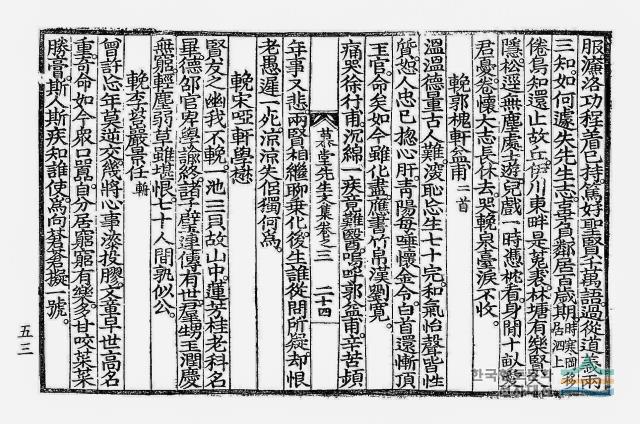 服濂洛功程着已持篤好聖賢千萬語過從道義兩
三知如何遽失先生志幸負鄰居百歲期時寒岡移居泗上
倦鳥知還止故丘伊川東畔是菟裘林塘有樂賢人
隱松逕無塵處士遊兒戲一時憑枕看身閒十畝愛
君憂卷懷大志長休去哭輓泉臺淚不收
輓郭槐軒益甫二首
溫溫德量古人難浚恥忘生七十完和氣怡聲皆性
質恕人忠已揔心肝靑陽每唾懷金令白首還慚頂
玉官命矣如今雖化盡應書竹帛漢劉寬
痛哭徐行甫沉綿一疾竟難醫嗚呼郭益甫辛苦頻
年事又悲兩賢相繼聊乘化後生誰從問所疑却恨
老愚遲一死凉凉失侶獨何爲
慕堂先生文集卷之三
二十四
輓宋啞軒學懋
賢友之幽我不輓一池三貝故山中蓮芳桂老科名
畢德邵官卑學論終諸子壁連傳有世甥玉潤慶
無窮輕塵弱草雖堪恨七十人間孰似公
輓李茗巖景任輈
曾許忘年莫逆交幾將心事漆投膠文章早世高名
重奇命如今衆口嚻自分居窮窮有樂多甘咬菜菜
勝膏斯人斯疾知誰使爲向蒼蒼擬一號
五三